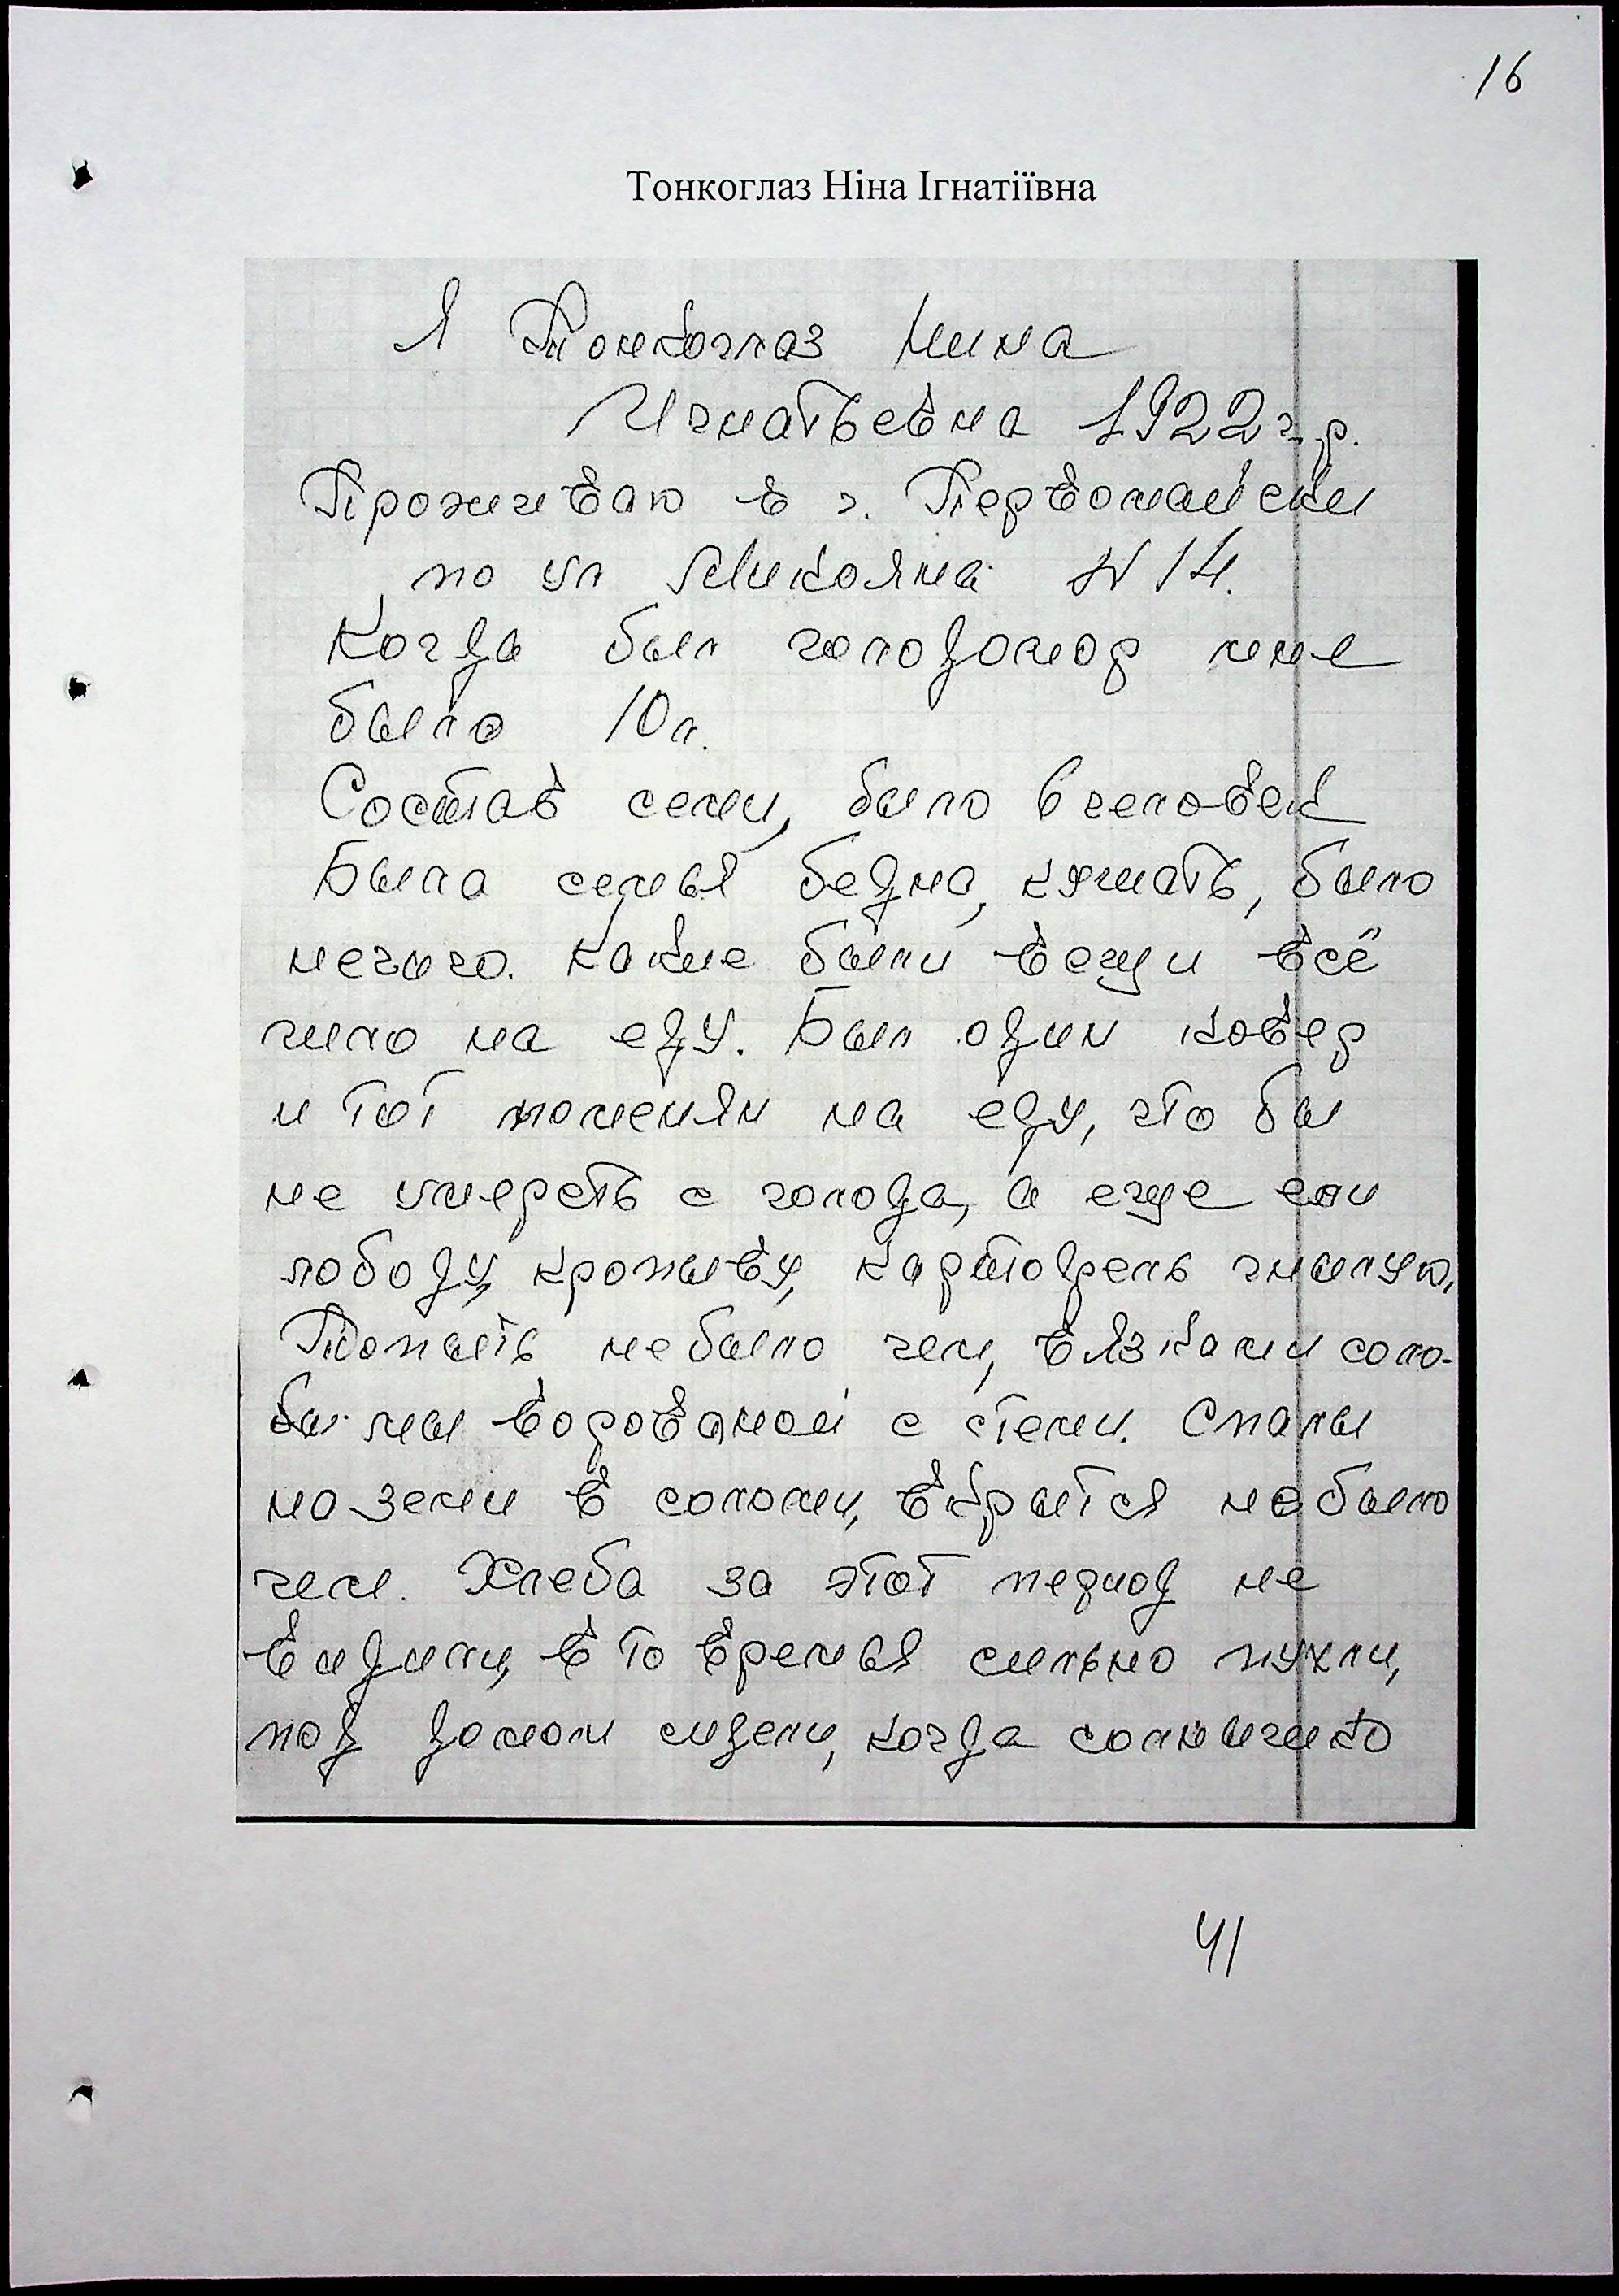 16
Тонкоглаз Ніна Ігнатіївна
Я Тонкоглаз Нина
Игнатьевна 1922 г.р.
Проживаю в г. Первомайски
по ул Микояна № 14.
Когда был голодомор мне
было 10 л.
Состав семи, было 6 человек
Была семья бедна, кушать, было
нечого. Какие были вещи всё
чило на еду. Был один ковер
и тот поменян на еду, что бы
не умереть с голода, а еще ели
лободу, кропыву, картофель гнылую,
Топыть небыло чем, вязками соло-
бы мы ворованой с степи. Спалы
на земи в соломи, вкрытся небыло
чем. Хлеба за этот период не
видили, в то времья сильно пухли,
под домом сидели, когда солнычико
41